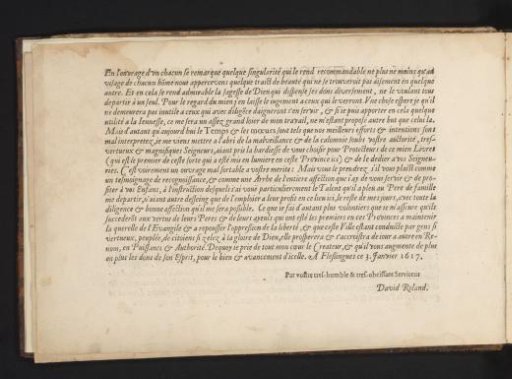 En l'ouvrage d'un chacun se remarque quelque singularité qui le rend recommandable ne plus ne moins qu'au
visage de chacun homme nous appercevons quelque traict de beauté qui ne se trouveroit pas aisement en quelque
autre. Et en cela se rend admirable la sagesse de Dieu qui dispense ses dons diversement, ne le voulant tous
departir à un seul. Pour le regard du mien j'en laisse le jugement a ceux qui le verront. Une chose espere je qu'il
ne demeurera pas inutile a ceux qui avec diligence daigneront s'en servir, & si ie puis apporter en cela quelque
utilité a la Ieunesse, ce me sera un assez grand loier de mon travail, ne m'estant proposé autre but que celui la.
Mais d'autant qu'aujourd'hui le Temps & les mœurs sont tels que nos meilleurs efforts & intentions sont
mal interpretez, je me viens mettre a l'abri de la malveillance & de la calomnie soubs vostre authorité, tres-
vertueux & magnifiques Seigneurs, aiant pris la hardiesse de vous choisir pour Protecteurs de ce mien Livret
(qui est le premier de ceste sorte qui a esté mis en lumiere en ceste Province ici) & de le dedier a vos Seigneu-
ries. C'est voirement un ouvrage mal sortable a vostre merite: Mais vous le prendrez s'il vous plaist comme
un tesmoignage de recognoissance, & comme une Arrhe de l'entiere affection que i'ay de vous servir & de pro-
fiter à vos Enfans, à l'instruction desquels i'ai voué particulierement le Talent qu'il a pleu au Pere de famille
me departir, n'aiant autre desseing que de l'emploier a leur profit en ce lieu ici, le reste de mes jours, avec toute la
diligence & bonne affection qu'il me sera possible. Ce que je fai d'autant plus volontiers que je m'asseure qu'ils
succederõt aux vertus de leurs Peres & de leurs ayeuls qui ont esté les premiers en ces Provinces a maintenir
la querelle de l'Evangile & a repousser l'oppression de la liberté, & que ceste Ville estant conduicte par gens si
vertueux, peuplée de citoiens si zelez à la gloire de Dieu, elle prosperera & s'accroistra de iour a autre en Re-
nom, en Puissance & Authorité. Dequoy ie prie de tout mon cœur le Createur, & qu'il vous augmente de plus
en plus les dons de son Esprit, pour le bien & avancement d'icelle. A Flessingues ce 3. Janvier 1617.
Par vostre tres-humble & tres-obeissant Serviteur
David Roland.